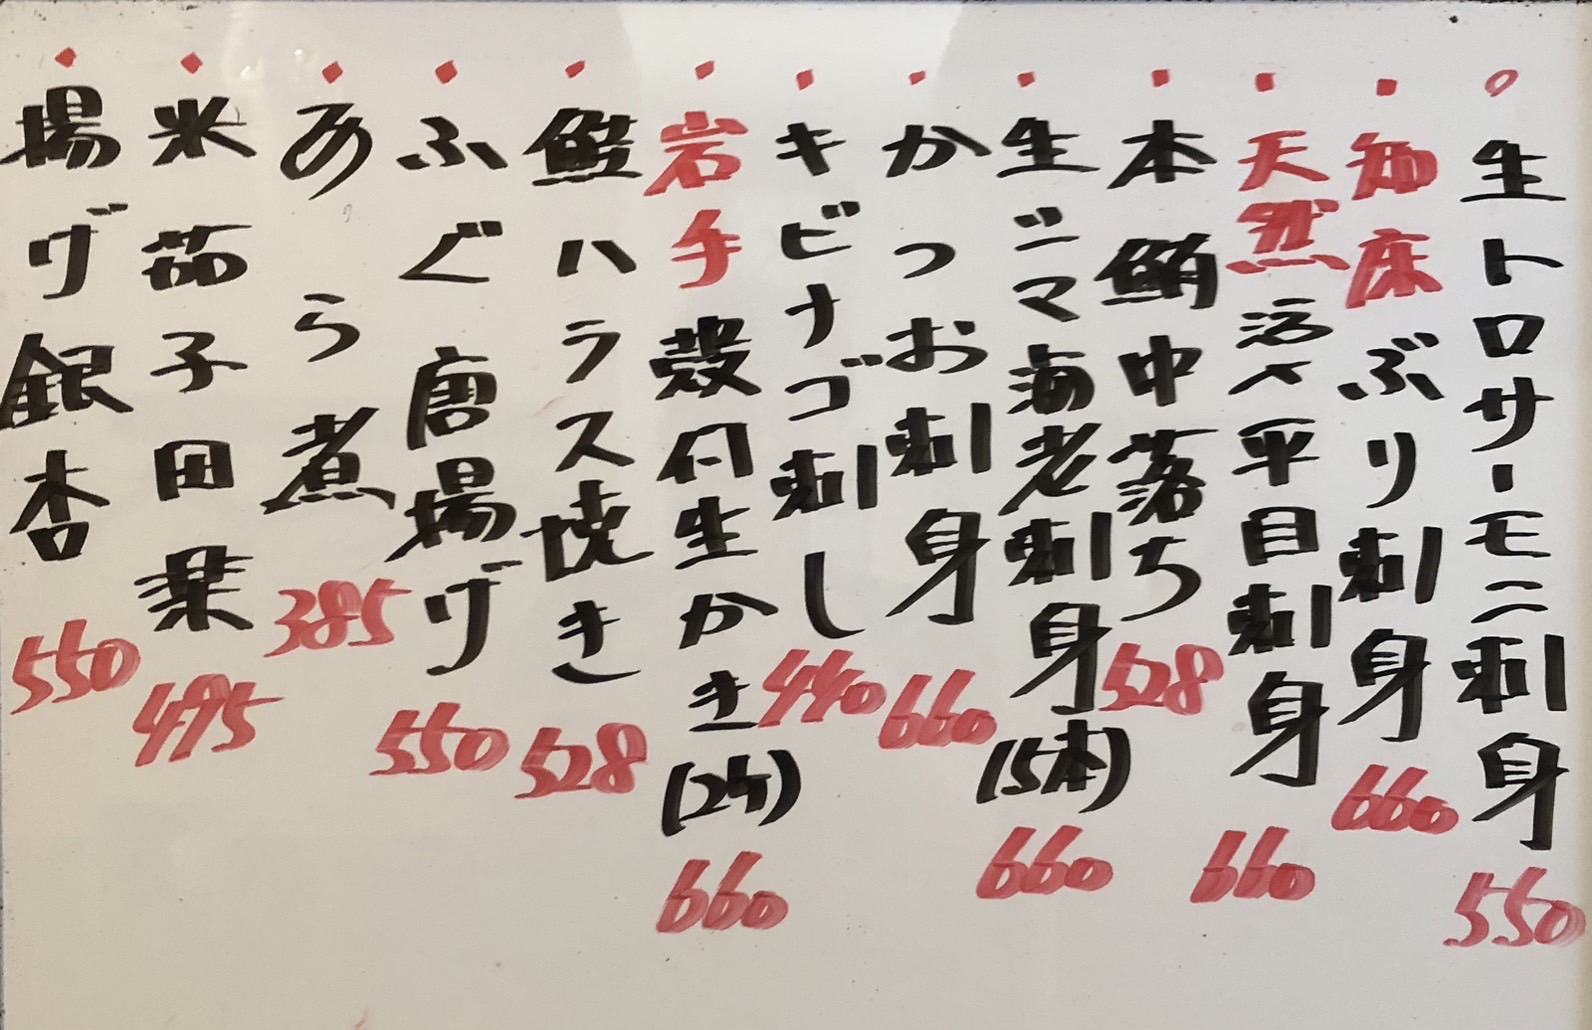 生トロサーモン刺身 550
知床ぶり刺身 660
天然活〆平目刺身 660
本鮪中落ち 528
生シマ海老刺身(5本) 660
かつお刺身 660
キビナゴ刺し 440
岩手殻付生かき(2ケ) 660
鮭ハラス焼き 528
ふぐ唐揚げ 550
あら煮 385
米茄子田楽 495
揚げ銀杏 550